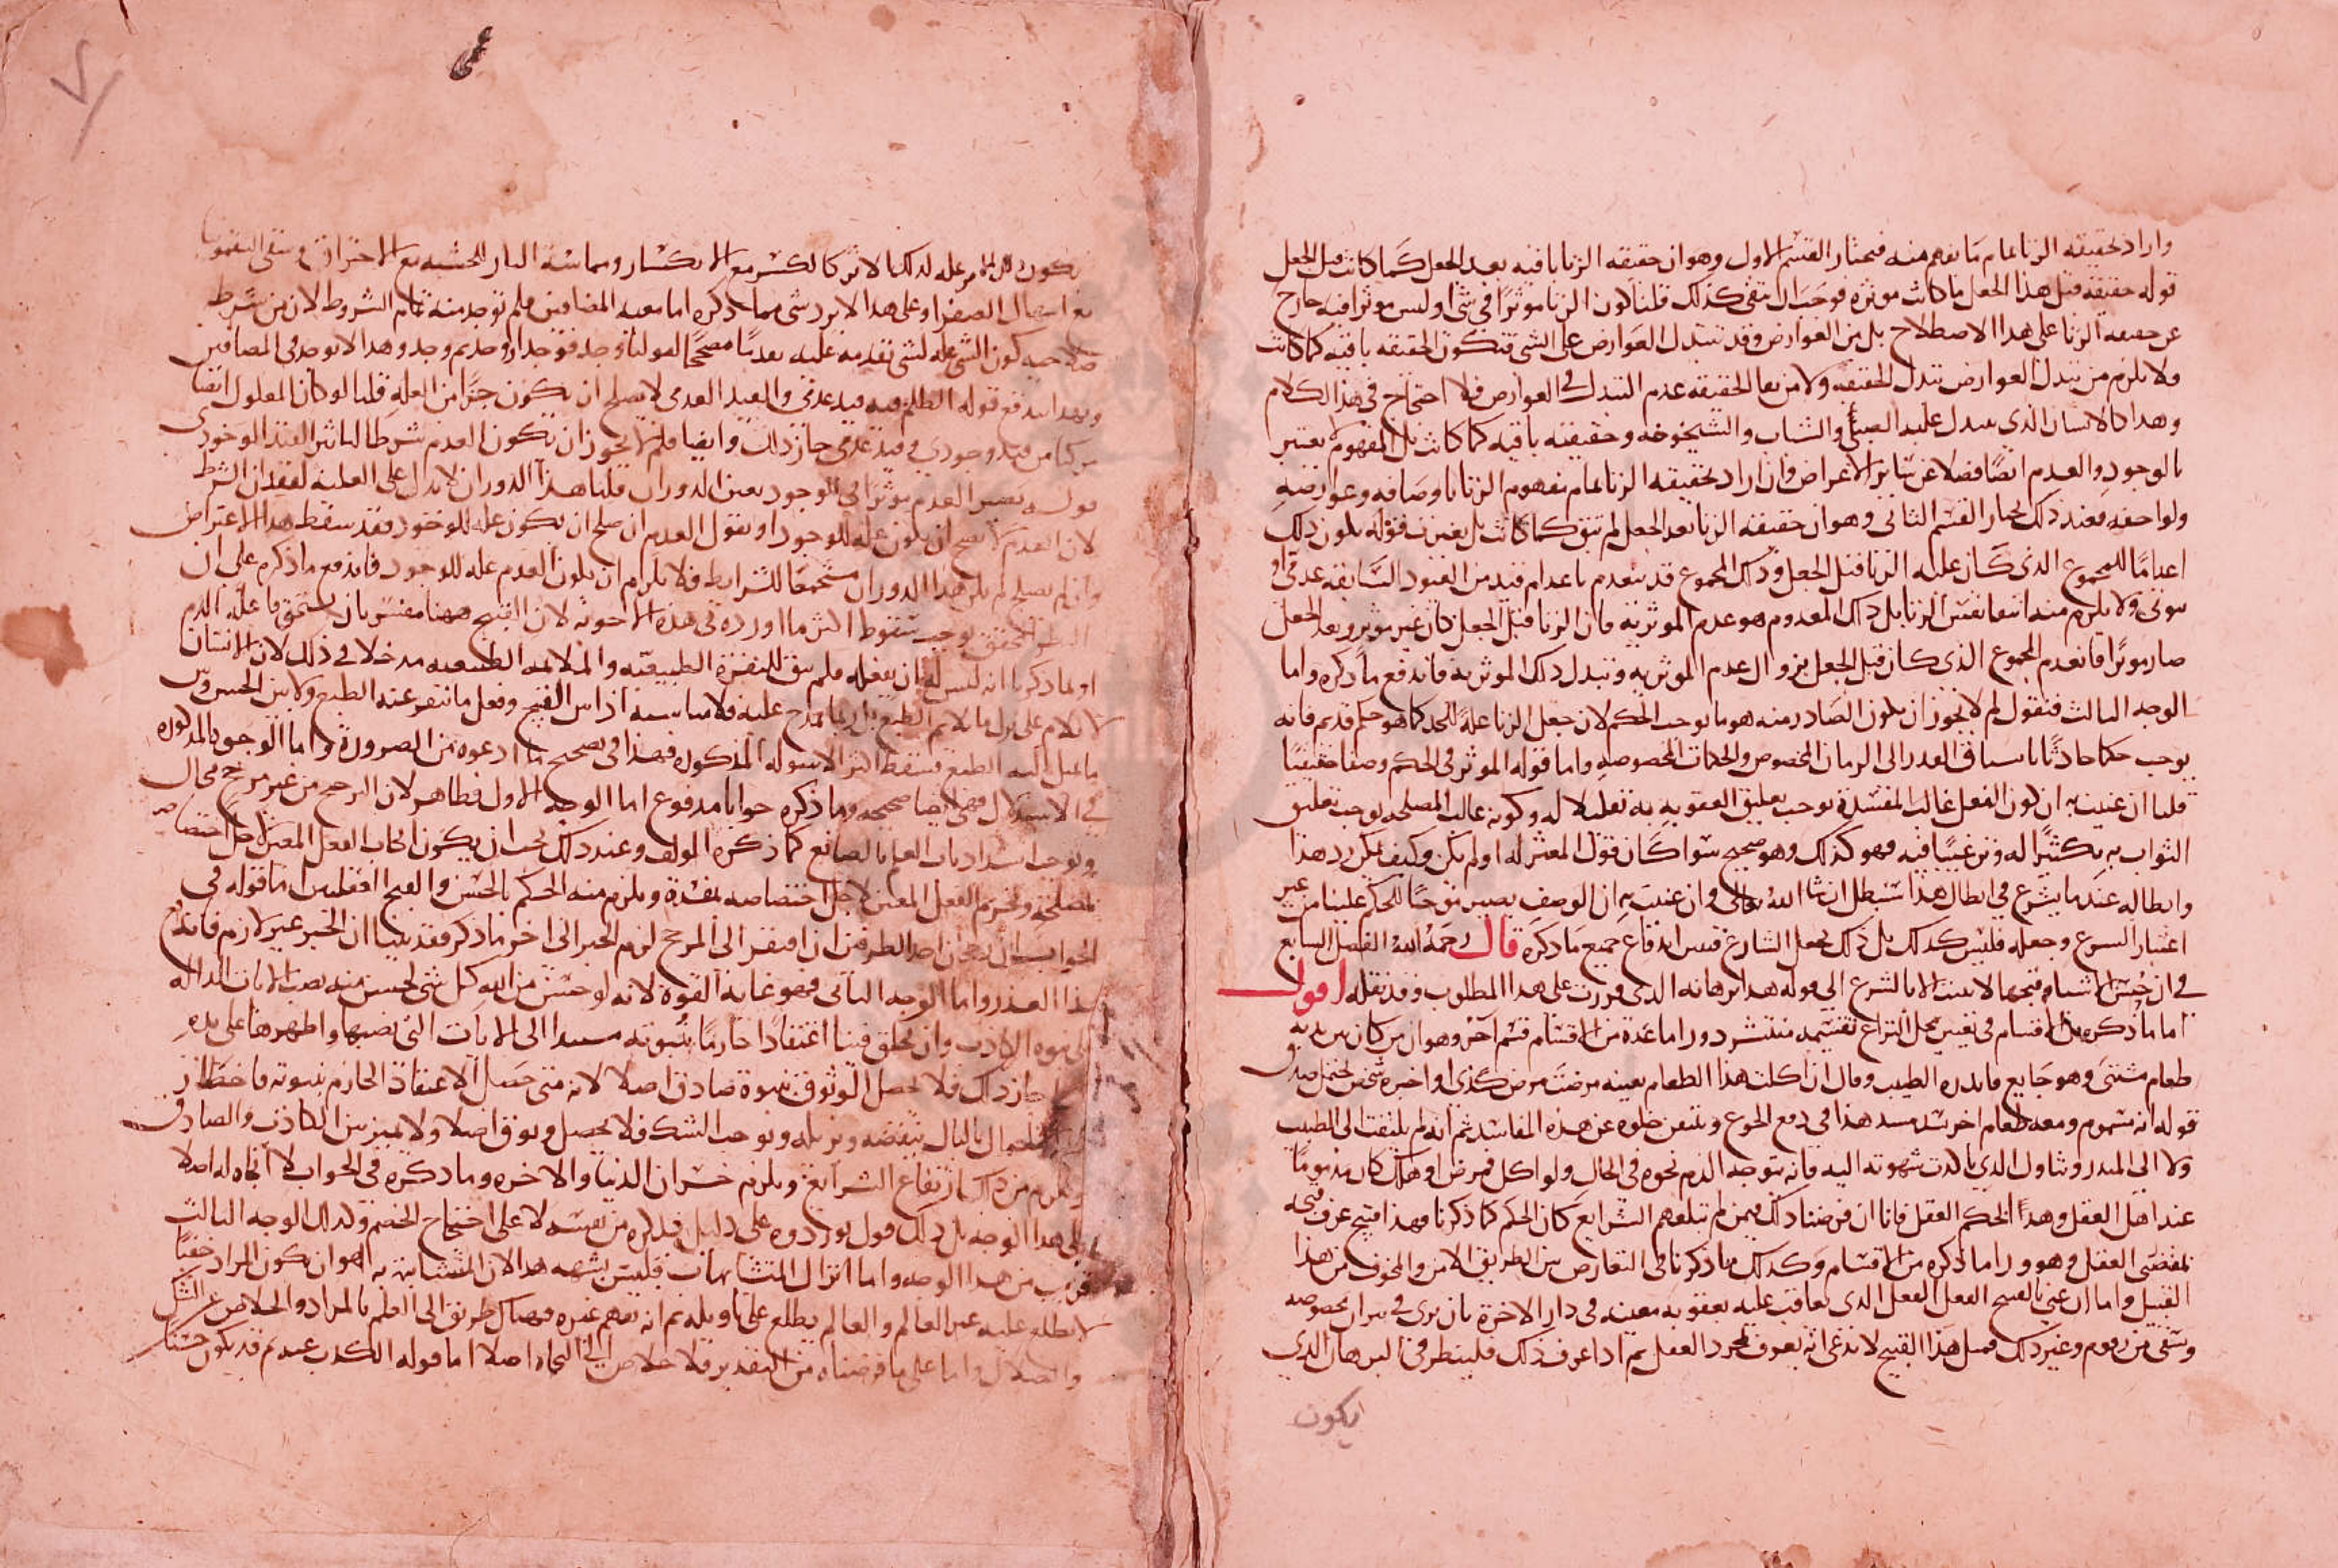 واراد بحقيقته الزنا تمام ما يفهم منه فيختار القسم الاول وهو ان حقيقه الزنا باقيه بعد الجعل كما كانت قبل الجعل
قوله حقيقته قبل هذا الجعل ما كانت موثره فوجب ان تبقى كذلك قلنا كون الزنا موثرا في شى او ليس موثرا فيه خارج
عن حقيقه الزنا على هذا الاصطلاح بل من العوارض وقد تتبدل العوارض على الشى فتكون الحقيقه باقيه كما كانت
ولا يلزم من تبدل العوارض تبدل الحقيقه ولا من بقا الحقيقه عدم التبدل في العوارض فلا احتجاج في هذا الكلام
وهذا كالانسان الذي يتبدل عليه الصبى والشباب والشيخوخه وحقيقته باقيه كما كانت بل المفهوم يعتبر
بالوجود والعدم ايضا فضلا عن ساير الاعراض وان اراد بحقيقه الزنا تمام مفهوم الزنا باوصافه وعوارضه
ولواحقه فعند ذلك نختار القسم الثاني وهو ان حقيقه الزنا بعد الجعل لم تبق كما كانت بل تغيرت قوله يكون ذلك
اعداما للمجموع الذي كان عليه الزنا قبل الجعل وذلك المجموع قد ينعدم باعدام قيد من القيود السابقه عدمي او
ثبوتي ولا يلزم منه انتفا نفس الزنا بل ذلك المعدوم هو عدم الموثريه فان الزنا قبل الجعل كان غير موثر وبعد الجعل
صار موثرا فانعدم المجموع الذي كان قبل الجعل بزوال عدم الموثريه وتبدل ذلك الموثريه فاندفع ما ذكره واما
الوجه الثالث فنقول لم لا يجوز ان يكون الصادر منه هو ما يوجب الحكم لان جعل الزنا عله للحد كما هو حكم قديم فانه
يوجب حكما حادثا بانسياق القدر الى الزمان المخصوص والجهات المخصوصه واما قوله الموثر في الحكم وصفا حقيقيا
قلنا ان عنيت به ان كون الفعل غالب المفسدة يوجب تعليق العقوبه به تقليلا له وكونه غالب المصلحه يوجب تعليق
الثواب به تكثيرا له وترغيبا فيه فهو كذلك وهو صحيح سوا كان قول المعتزله او لم يكن وكيف يمكن رد هذا
وابطاله عندما يشرع في ابطال هذا سنبطل ان شا الله تعالى وان عنيت به ان الوصف يصير موجبا للحكم علينا من غير
اعتبار الشرع وجعله فليس كذلك بل ذلك بجعل الشارع فتبين اندفاع جميع ما ذكره قال رحمه الله الفصل السابع
في ان حسن الاشيا وقبحها لا يثبت الا بالشرع الى قوله هذا برهانه الذي قررت على هذا المطلوب وقد نقله اقول
اما ما ذكره من الاقسام في تعيين محل النزاع تقسيمه منتشر وورا ما عده من الاقسام قسم آخر وهو ان من كان بين يديه
طعام مشتهى وهو جايع فانذره الطبيب وقال ان اكلت هذا الطعام بعينه مرضت مرض كذى او اخبره شخص
قوله انه مسموم ومعه طعام اخر يسد مسد هذا في دفع الجوع ويتيقن خلوه عن هذه المفاسد ثم انه لم يلتفت الى الطبيب
ولا الى المنذر وتناول الذي نالت شهوته اليه فانه يتوجه الذم نحوه في الحال ولو اكل فمرض او هلك كان مذموما
عند اهل العقل وهذا الحكم العقل فانا ان فرضنا ذلك فيمن لم تبلغهم الشرايع كان الحكم كما ذكرنا فهذا قبيح عرف قبحه
بمقتضى العقل وهو ورا ما ذكره من الاقسام وكذلك ما ذكرنا في التعارض بين الطريق الامن والمخوف من هذا
القبيل واما ان عني بالقبيح الفعل الذي يعاقب عليه بعقوبه معينه في دار الاخرة بان يرى في نيران مخصوصه
ويسقى من زقوم وغير ذلك فمثل هذا القبيح لا ندعي انه يعرف بمجرد العقل ثم اذا عرف ذلك فلينظر في البرهان الذي
يكون
عله لذلك الاثر كالكسر مع الانكسار ومماسة النار الخشبه مع الاحتراق
اسهال الصفرا وعلى هذا لا يرد شى مما ذكره اما معيه المضافين فلم توجد منه تمام الشروط لان من شرط
كون الشى عله لشى تقدمه عليه تقدما مصححا لقولنا وجد فوجد او وجد ثم وجد وهذا لا يوجد في المضافين
وبهذا يندفع قوله الظلم فيه قيد عدمي والقيد العدمي لا يصلح ان يكون جزا من العله قلنا لو كان المعلول ايضا
مركبا من قيد وجودي وقيد عدمي جاز ذلك وايضا فلم لا يجوز ان يكون العدم شرطا لتاثير القيد الوجودي
قوله يصير العدم موثرا في الوجود بعين الدوران قلنا هذا الدوران لا يدل على العليه لفقدان الشرط
لان العدم لا يصح ان يكون عله للوجود او نقول العدم ان صلح ان يكون عله للوجود فقد سقط هذا الاعتراض
وان لم يصلح لم يكن هذا الدوران مستجمعا للشرايط فلا يلزم ان يكون العدم عله للوجود فاندفع ما ذكره على ان
يوجب سقوط اكثر ما اورده في هذه الاجوبه لان القبيح ههنا مفسر بان يستحق فاعله الذم
او بما ذكرنا انه ليس له ان يفعله فلم يبق للنفرة الطبيعيه والملايمه الطبيعيه مدخلا في ذلك لان الانسان
لا يلام على ترك ما يلايم الطبع بل ربما يمدح عليه فلا مناسبه اذا بين القبيح وفعل ما ينفر عنه الطبع ولا بين الحسن وبين
ما يميل اليه الطبع فسقط اكثر الاسوله المذكوره فهذا في تصحيح ما ادعوه من الضرورة واما الوجوه المذكوره
في الاستدلال فهي ايضا صحيحه وما ذكره جوابا مدفوع اما الوجه الاول فظاهر لان الترجيح من غير مرجح محال
ويوجب انسداد باب العلم بالصانع كما ذكره المولف وعند ذلك يجب ان يكون ايجاب الفعل المعين لاجل اختصاصه
بمصلحه وتحريم الفعل المعين لاجل اختصاصه بمفسدة ويلزم منه الحكم بالحسن والقبح العقليين اما قوله في
الجواب ان رجحان احد الطرفين ان افتقر الى المرجح لزم الجبر الى اخر ما ذكر فقد بينا ان الجبر غير لازم فاندفع
هذا العذر واما الوجه الثاني فهو غاية القوه لانه لو حسن من الله كل شى لحسن منه نصب الايات الداله
على نبوه الكاذب وان يخلق فينا اعتقادا جازما بنبوته مستندا الى الايات التي نصبها واظهرها على يده
جاز ذلك فلا يحصل الوثوق بنبوة صادق اصلا لانه متى حصل الاعتقاد الجازم بنبوته فاخطار
الاحتمال بالبال ينقضه ويزيله ويوجب الشك فلا يحصل وثوق اصلا ولا تمييز بين الكاذب والصادق
ويلزم من ذلك ارتفاع الشرايع ويلزم خسران الدنيا والاخره وما ذكره في الجواب لا اتجاه له اصلا
على هذا الوجه بل ذلك قول يورده على دليل يذكره من نفسه لا على احتجاج الخصم وكذلك الوجه الثالث
قريب من هذا الوجه واما انزال المتشابهات فليس يشبه هذا لان المتشابه به هو ان يكون المراد خفيا
لا يطلع عليه غير العالم والعالم يطلع على تاويله ثم انه يفهم غيره فهناك طريق الى العلم بالمراد والخلاص عن الشك
والضلال واما على ما فرضناه من التقدير فلا خلاص الى النجاه اصلا اما قوله الكذب عندكم قد يكون حسنا